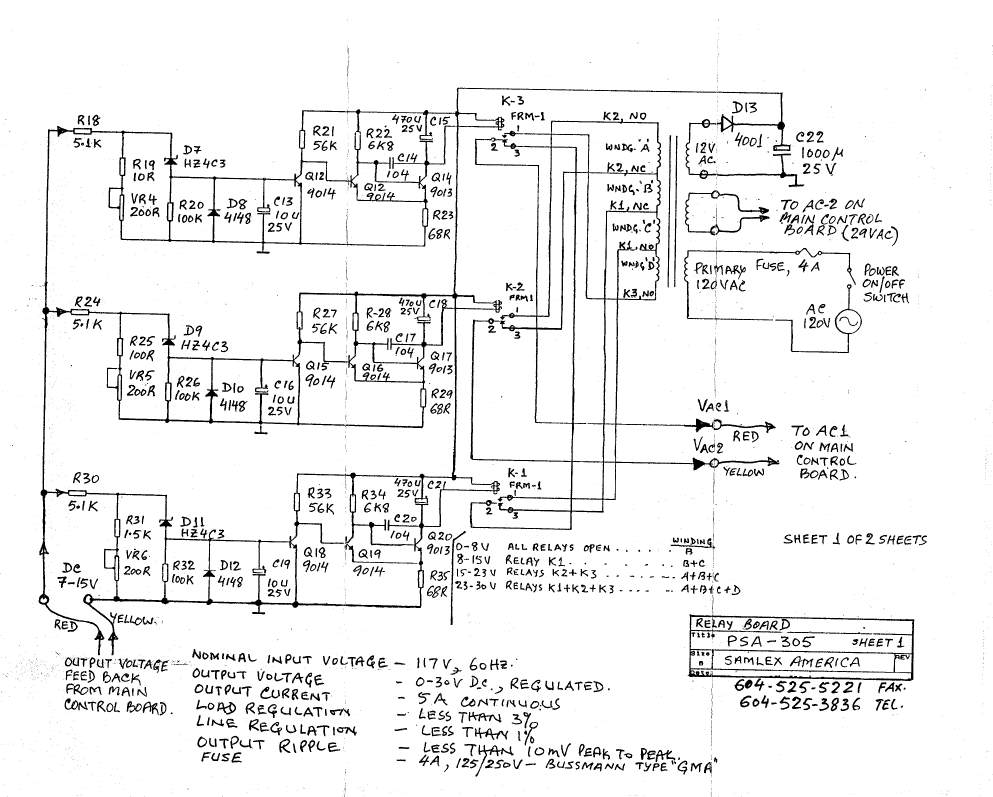 K-3
FRM-1
K2, NO
D13
4001
C22
1000µ
25V
12V
AC
R18
5.1K
D7
HZ4C3
R19
10R
VR4
200R
R20
100K
D8
4148
C13
10U
25V
R21
56K
R22
6K8
470U
25V
C15
C14
104
Q12
9014
Q12
9014
Q14
9013
R23
68R
1
2
3
WNDG.'A'
K2, NC
WNDG.'B'
K1, NC
WNDG.'C'
K1, NO
WNDG.'D'
K3, NO
TO AC-2 ON
MAIN CONTROL
BOARD (29VAC)
PRIMARY
120VAC
FUSE, 4A
POWER
ON/OFF
SWITCH
AC
120V
R24
5.1K
D9
HZ4C3
R25
100R
VR5
200R
R26
100K
D10
4148
C16
10U
25V
R27
56K
R-28
6K8
470U
25V
C18
C17
104
Q15
9014
Q16
9014
Q17
9013
R29
68R
K-2
FRM1
1
2
3
VAC1
RED
VAC2
YELLOW
TO AC1
ON MAIN
CONTROL
BOARD.
R30
5.1K
D11
HZ4C3
R31
1.5K
VR6
200R
R32
100K
D12
4148
C19
10U
25V
R33
56K
R34
6K8
470U
25V
C21
C20
104
Q18
9014
Q19
9014
Q20
9013
R35
68R
K-1
FRM-1
1
2
3
DC
7-15V
RED
YELLOW
WINDING
0-8V ALL RELAYS OPEN . . . . . . B
8-15V RELAY K1. . . . . . . B+C
15-23V RELAYS K2+K3 . . . . . . A+B+C
23-30V RELAYS K1+K2+K3 . . . . . A+B+C+D
SHEET 1 OF 2 SHEETS
OUTPUT VOLTAGE
FEED BACK
FROM MAIN
CONTROL BOARD.
NOMINAL INPUT VOLTAGE – 117V, 60HZ.
OUTPUT VOLTAGE – 0-30V D.C., REGULATED.
OUTPUT CURRENT – 5A CONTINUOUS
LOAD REGULATION – LESS THAN 3%
LINE REGULATION – LESS THAN 1%
OUTPUT RIPPLE – LESS THAN 10mV PEAK TO PEAK.
FUSE – 4A, 125/250V – BUSSMANN TYPE "GMA"
RELAY BOARD
Title
PSA-305 SHEET 1
Size
B
SAMLEX AMERICA
REV
Date
604-525-5221 FAX.
604-525-3836 TEL.